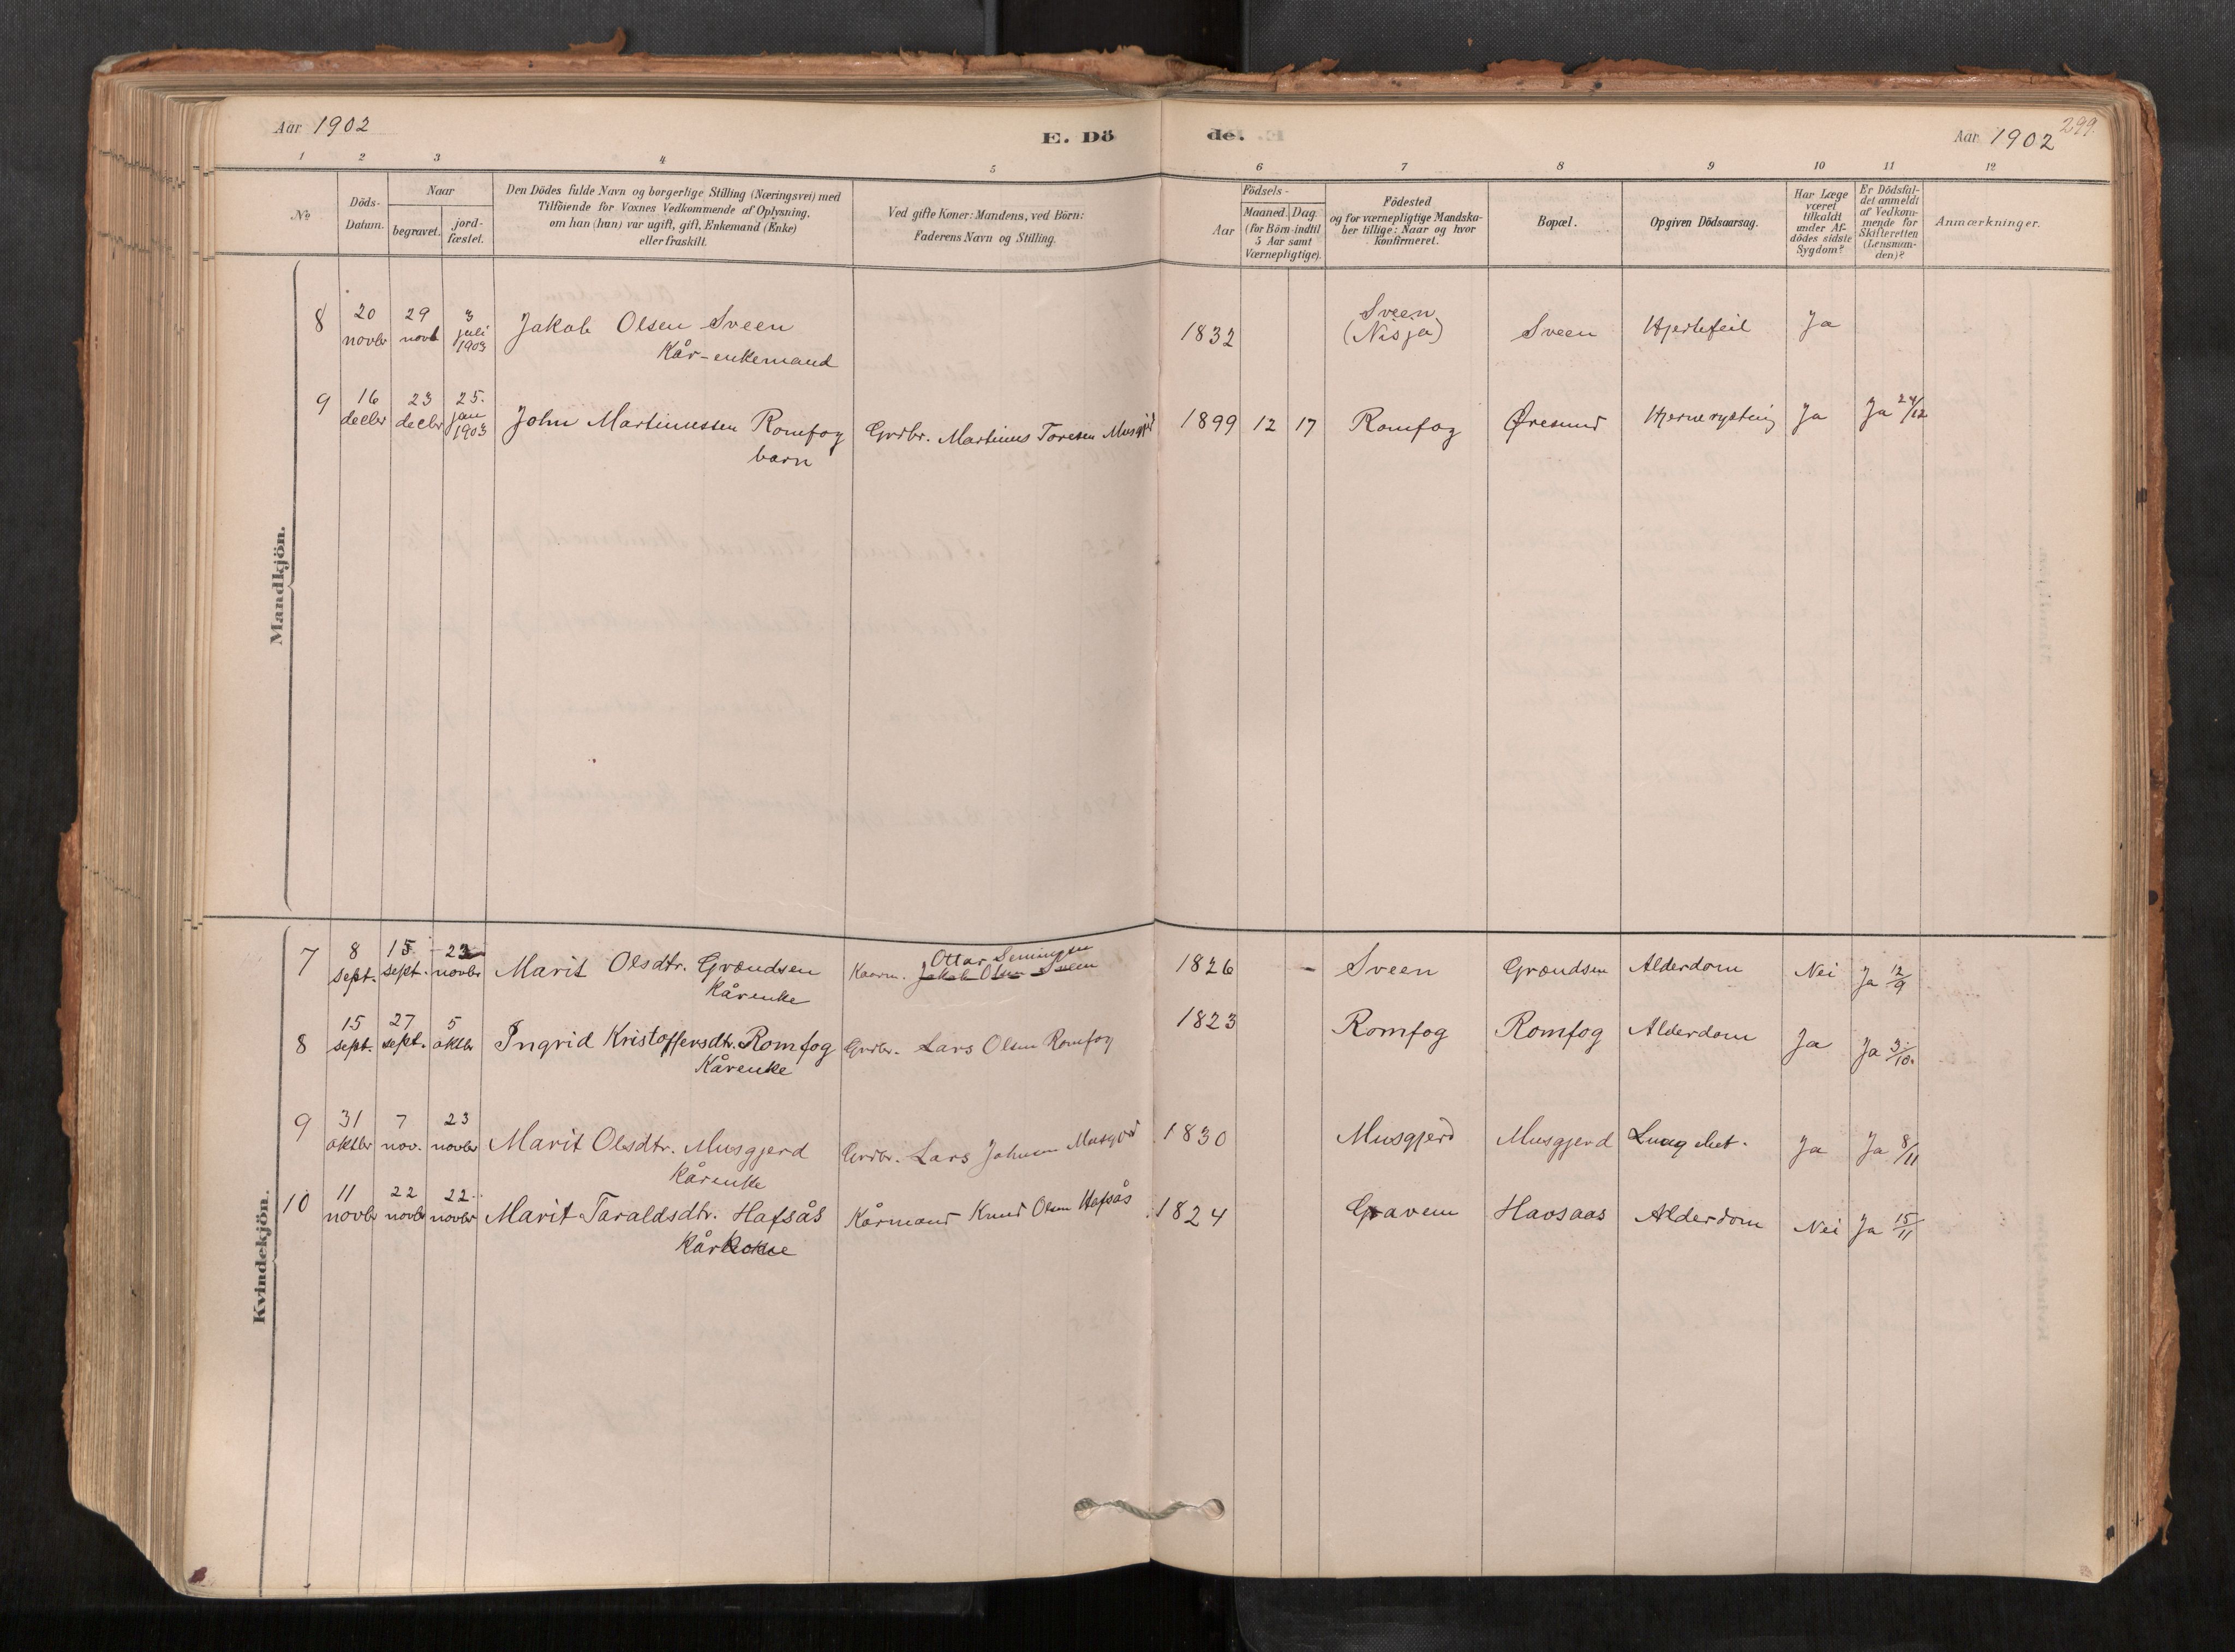 Aar 1902
E. Dö
de.
Aar 1902
299.
1 2 3 4 5 6 7 8 9 10 11 12
No
Döds-
Datum.
Naar
begravet.
jord-
fæstet.
Den Dödes fulde Navn og borgerlige Stilling (Næringsvei) med
Tilföiende for Voxnes Vedkommende af Oplysning,
om han (hun) var ugift, gift, Enkemand (Enke)
eller fraskilt.
Ved gifte Koner: Mandens, ved Börn:
Faderens Navn og Stilling.
Födsels-
Aar
Maaned. Dag.
(for Börn indtil
5 Aar samt
Værnepligtige).
Födested
og for værnepligtige Mandska-
ber tillige: Naar og hvor
konfirmeret.
Bopæl.
Opgiven Dödsaarsag.
Har Læge
været
tilkaldt
under Af-
dödes sidste
Sygdom?
Er Dödsfal-
det anmeldt
af Vedkom-
mende for
Skifteretten
(Lensman-
den)?
Anmærkninger.
Mandkjön.
8 20 novbr 29 novb 3 juli 1903 Jakob Olsen Sveen 1832 Sveen (Nisja) Sveen Hjertefeil Ja
Kår-enkemand
9 16 decbr 23 decbr 25. jan 1903 John Martinussen Romfog Grdbr. Martinus Toresen Musgjerd 1899 12 17 Romfog Øresund Hjernerystning Ja Ja 24/12
barn
Kvindekjön.
7 8 sept. 15 sept. 23 novbr Marit Olsdtr. Grændsen Kaarm. Jakob Olsen Sveen 1826 - Sveen Grændsen Alderdom Nei Ja 12/9
Kårenke
8 15 sept. 27 sept. 5 oktbr Ingrid Kristoffersdtr. Romfog Grdbr. Lars Olsen Romfog 1823 Romfog Romfog Alderdom Ja Ja 3./10.
Kårenke
9 31 oktbr 7 nov. 23 novbr Marit Olsdtr. Musgjerd Grdbr. Lars Johnsen Musgjerd 1830 Musgjerd Musgjerd Ja Ja 8/11
Kårenke
10 11 novbr 22 novbr 22. novbr Marit Taraldsdtr. Hafsås Kårmand Knud Olsen Hafsås 1824 Gravem Havsaas Alderdom Nei Ja 15/11
Kårkone